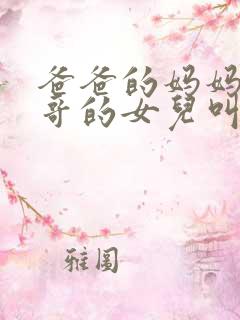 爸爸的妈妈
哥的女兒叫
雅圖